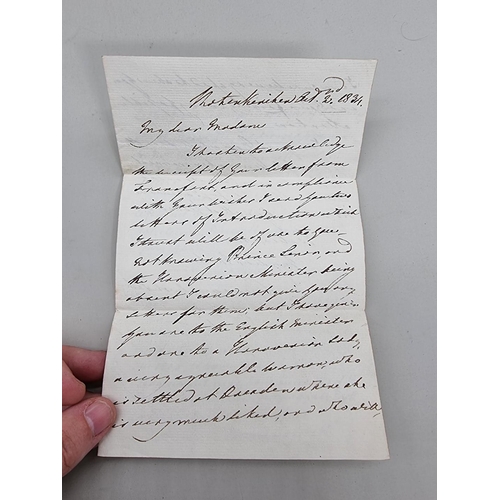 Oct. 2nd. 1834.
My dear Madam
I hasten to acknowledge
the receipt of your letter from
and in compliance
with your wishes I send you two
letters of Introduction which
I trust will be of use to you
not knowing Prince and
the Hanoverian Minister being
absent I could not give you any
letter for them; but I have given
you one to the English Minister
and one to a Hanoverian Lady,
a very agreeable woman, who
is settled at Dresden where she
is very much liked, and who will